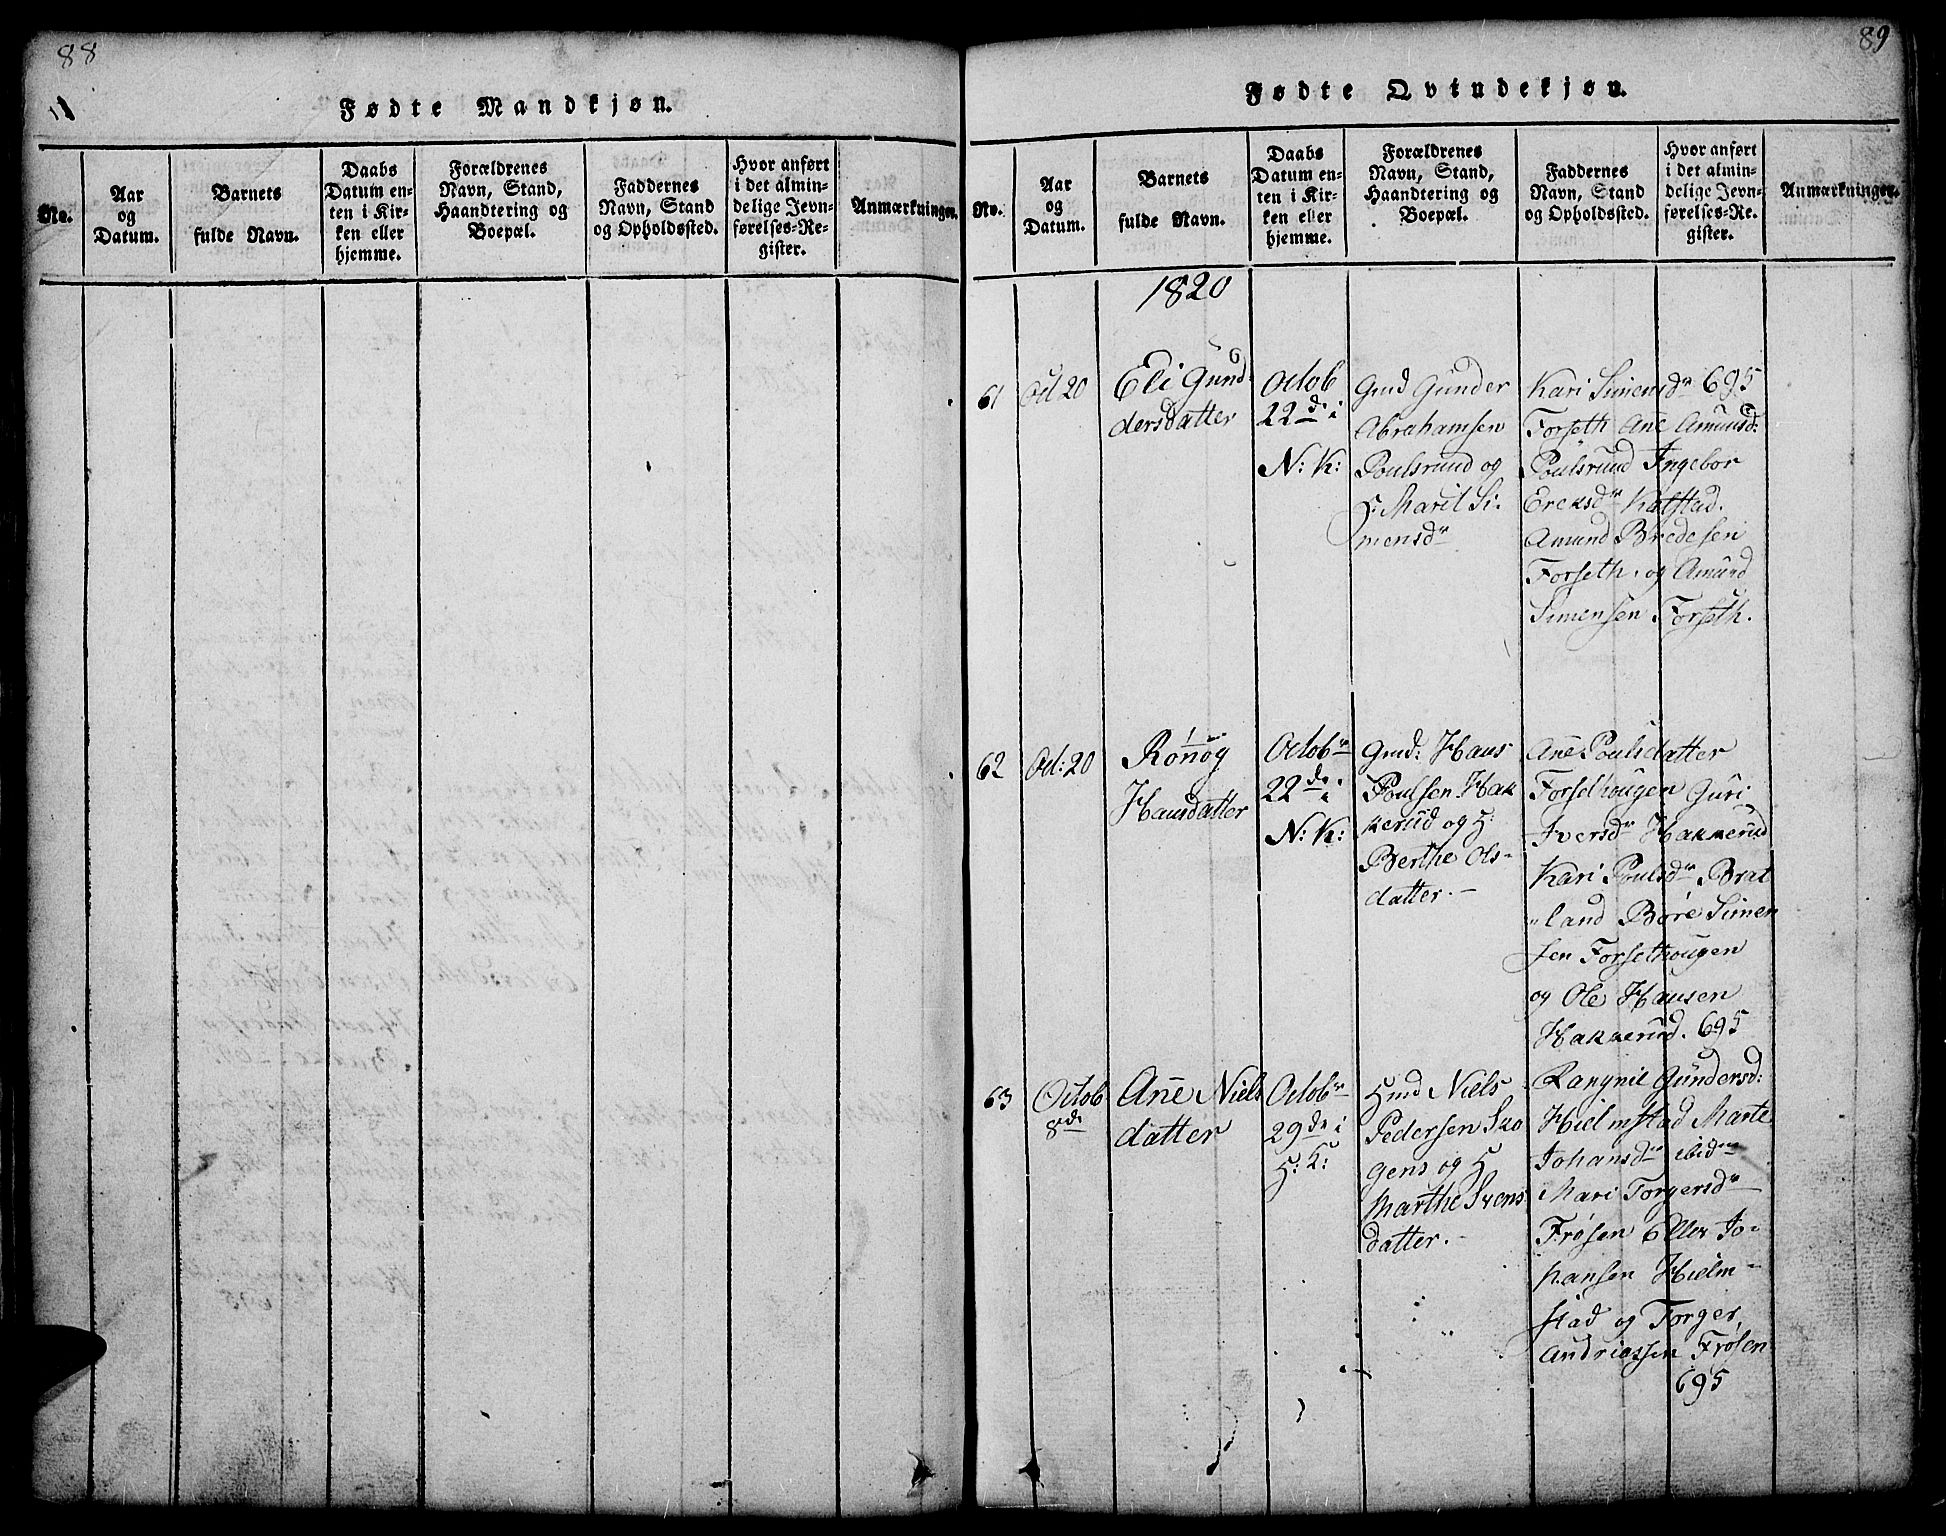 88
Fødte Mandkjøn.
No.
Aar
og
Datum.
Barnets
fulde Navn.
Daabs
Datum en-
ten i Kir-
ken eller
hjemme.
Forældrenes
Navn, Stand,
Haandtering og
Boepæl.
Faddernes
Navn, Stand
og Opholdssted.
Hvor anført
i det almin-
delige Jevn-
førelses-Re-
gister.
Anmærkninger.
89
Fødte Qvindekjøn.
No.
Aar
og
Datum.
Barnets
fulde Navn.
Daabs
Datum en-
ten i Kir-
ken eller
hjemme.
Forældrenes
Navn, Stand,
Haandtering og
Boepæl.
Faddernes
Navn, Stand
og Opholdssted.
Hvor anført
i det almin-
delige Jevn-
førelses-Re-
gister.
Anmærkninger.
1820
61
Oct 20
Eli Gund-
dersdatter
Octob
22de i
N: K:
Gmd Gunder
Abrahamsen
Poulsrund og
H: Marit Si-
mensdr
Kari Simensdr 695
Forseth Ane Amunsd:
Poulsrund Ingebor
Ereksdr Kalstad.
Amund Bredesen
Forseth. og Amund
Simensen Forseth.
62
Oct: 20
Rönnög
Hansdatter
Octobr
22de i
N: K:
Gmd: Hans
Poulsen Hak
kerud og H:
Berthe Ols-
datter.-
Ane Poulsdatter
Forsethougen Guri
Iversdr Hakkerud
Kari Poulsdr Brat
"land Böre Simen
sen Forsethougen
og Ole Hansen
Hakkerud. 695
63
Octob
8de
Ane Niels
datter
Octobr
29de i
H: K:
Hmd Niels
Pedersen Sko
gens og H
Marthe Svens
datter.-
Rangnil Gundersd:
Hielmstad Marte
Johansdr ibidm
Mari Torgersdr
Frösen Eller Jo-
hansen Hielm-
stad og Torger,
Andriassen Frösen
695